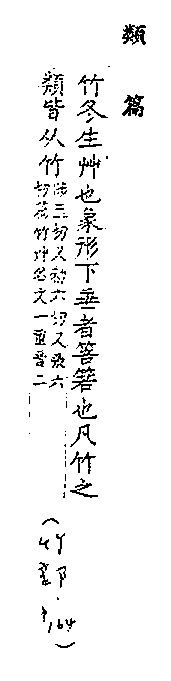 類篇
竹冬生艸也象形下垂者箁箬也凡竹之
類皆从竹
切又六切又六
切竹艸名文一重音二
(竹部. P.164)